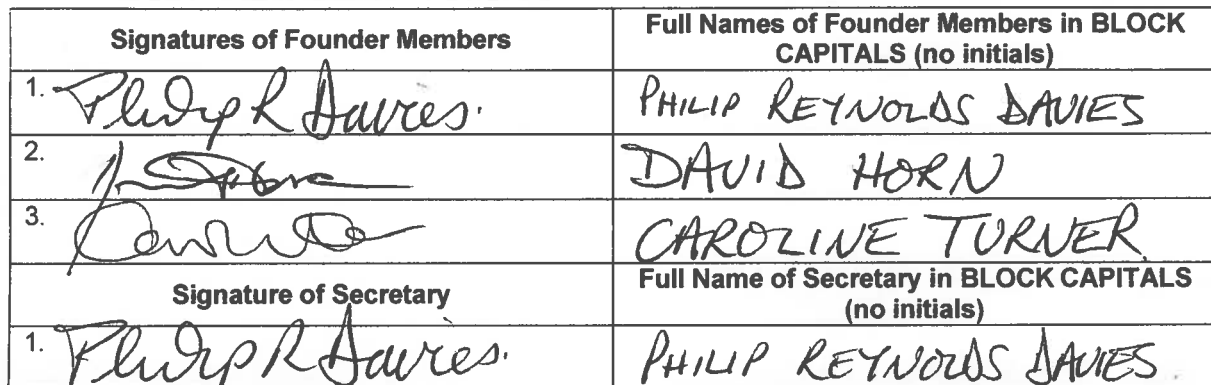 Signatures of Founder Members
Full Names of Founder Members in BLOCK
CAPITALS (no initials)
1. Philip R Davies.
PHILIP REYNOLDS DAVIES
2.
DAVID HORN
3.
CAROLINE TURNER
Signature of Secretary
Full Name of Secretary in BLOCK CAPITALS
(no initials)
1. Philip R Davies.
PHILIP REYNOLDS DAVIES